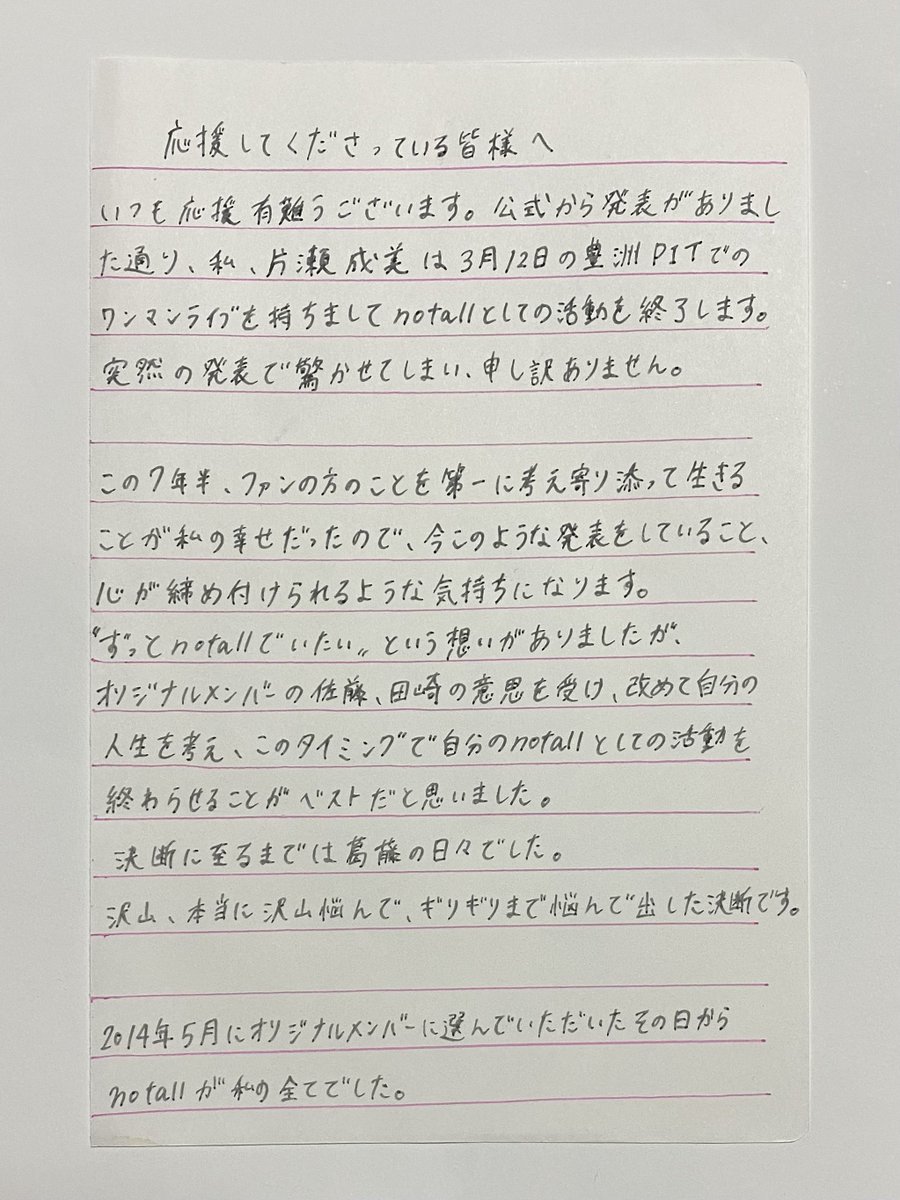 応援してくださっている皆様へ
いつも応援有難うございます。公式から発表がありまし
た通り、私、片瀬成美は3月12日の豊洲PITでの
ワンマンライブを持ちましてnotallとしての活動を終了します。
突然の発表で驚かせてしまい、申し訳ありません。
この7年半、ファンの方のことを第一に考え寄り添って生きる
ことが私の幸せだったので、今このような発表をしていること、
心が締め付けられるような気持ちになります。
〝ずっとnotallでいたい〟という想いがありましたが、
オリジナルメンバーの佐藤、田崎の意思を受け、改めて自分の
人生を考え、このタイミングで自分のnotallとしての活動を
終わらせることがベストだと思いました。
決断に至るまでは葛藤の日々でした。
沢山、本当に沢山悩んで、ギリギリまで悩んで出した決断です。
2014年5月にオリジナルメンバーに選んでいただいたその日から
notallが私の全てでした。